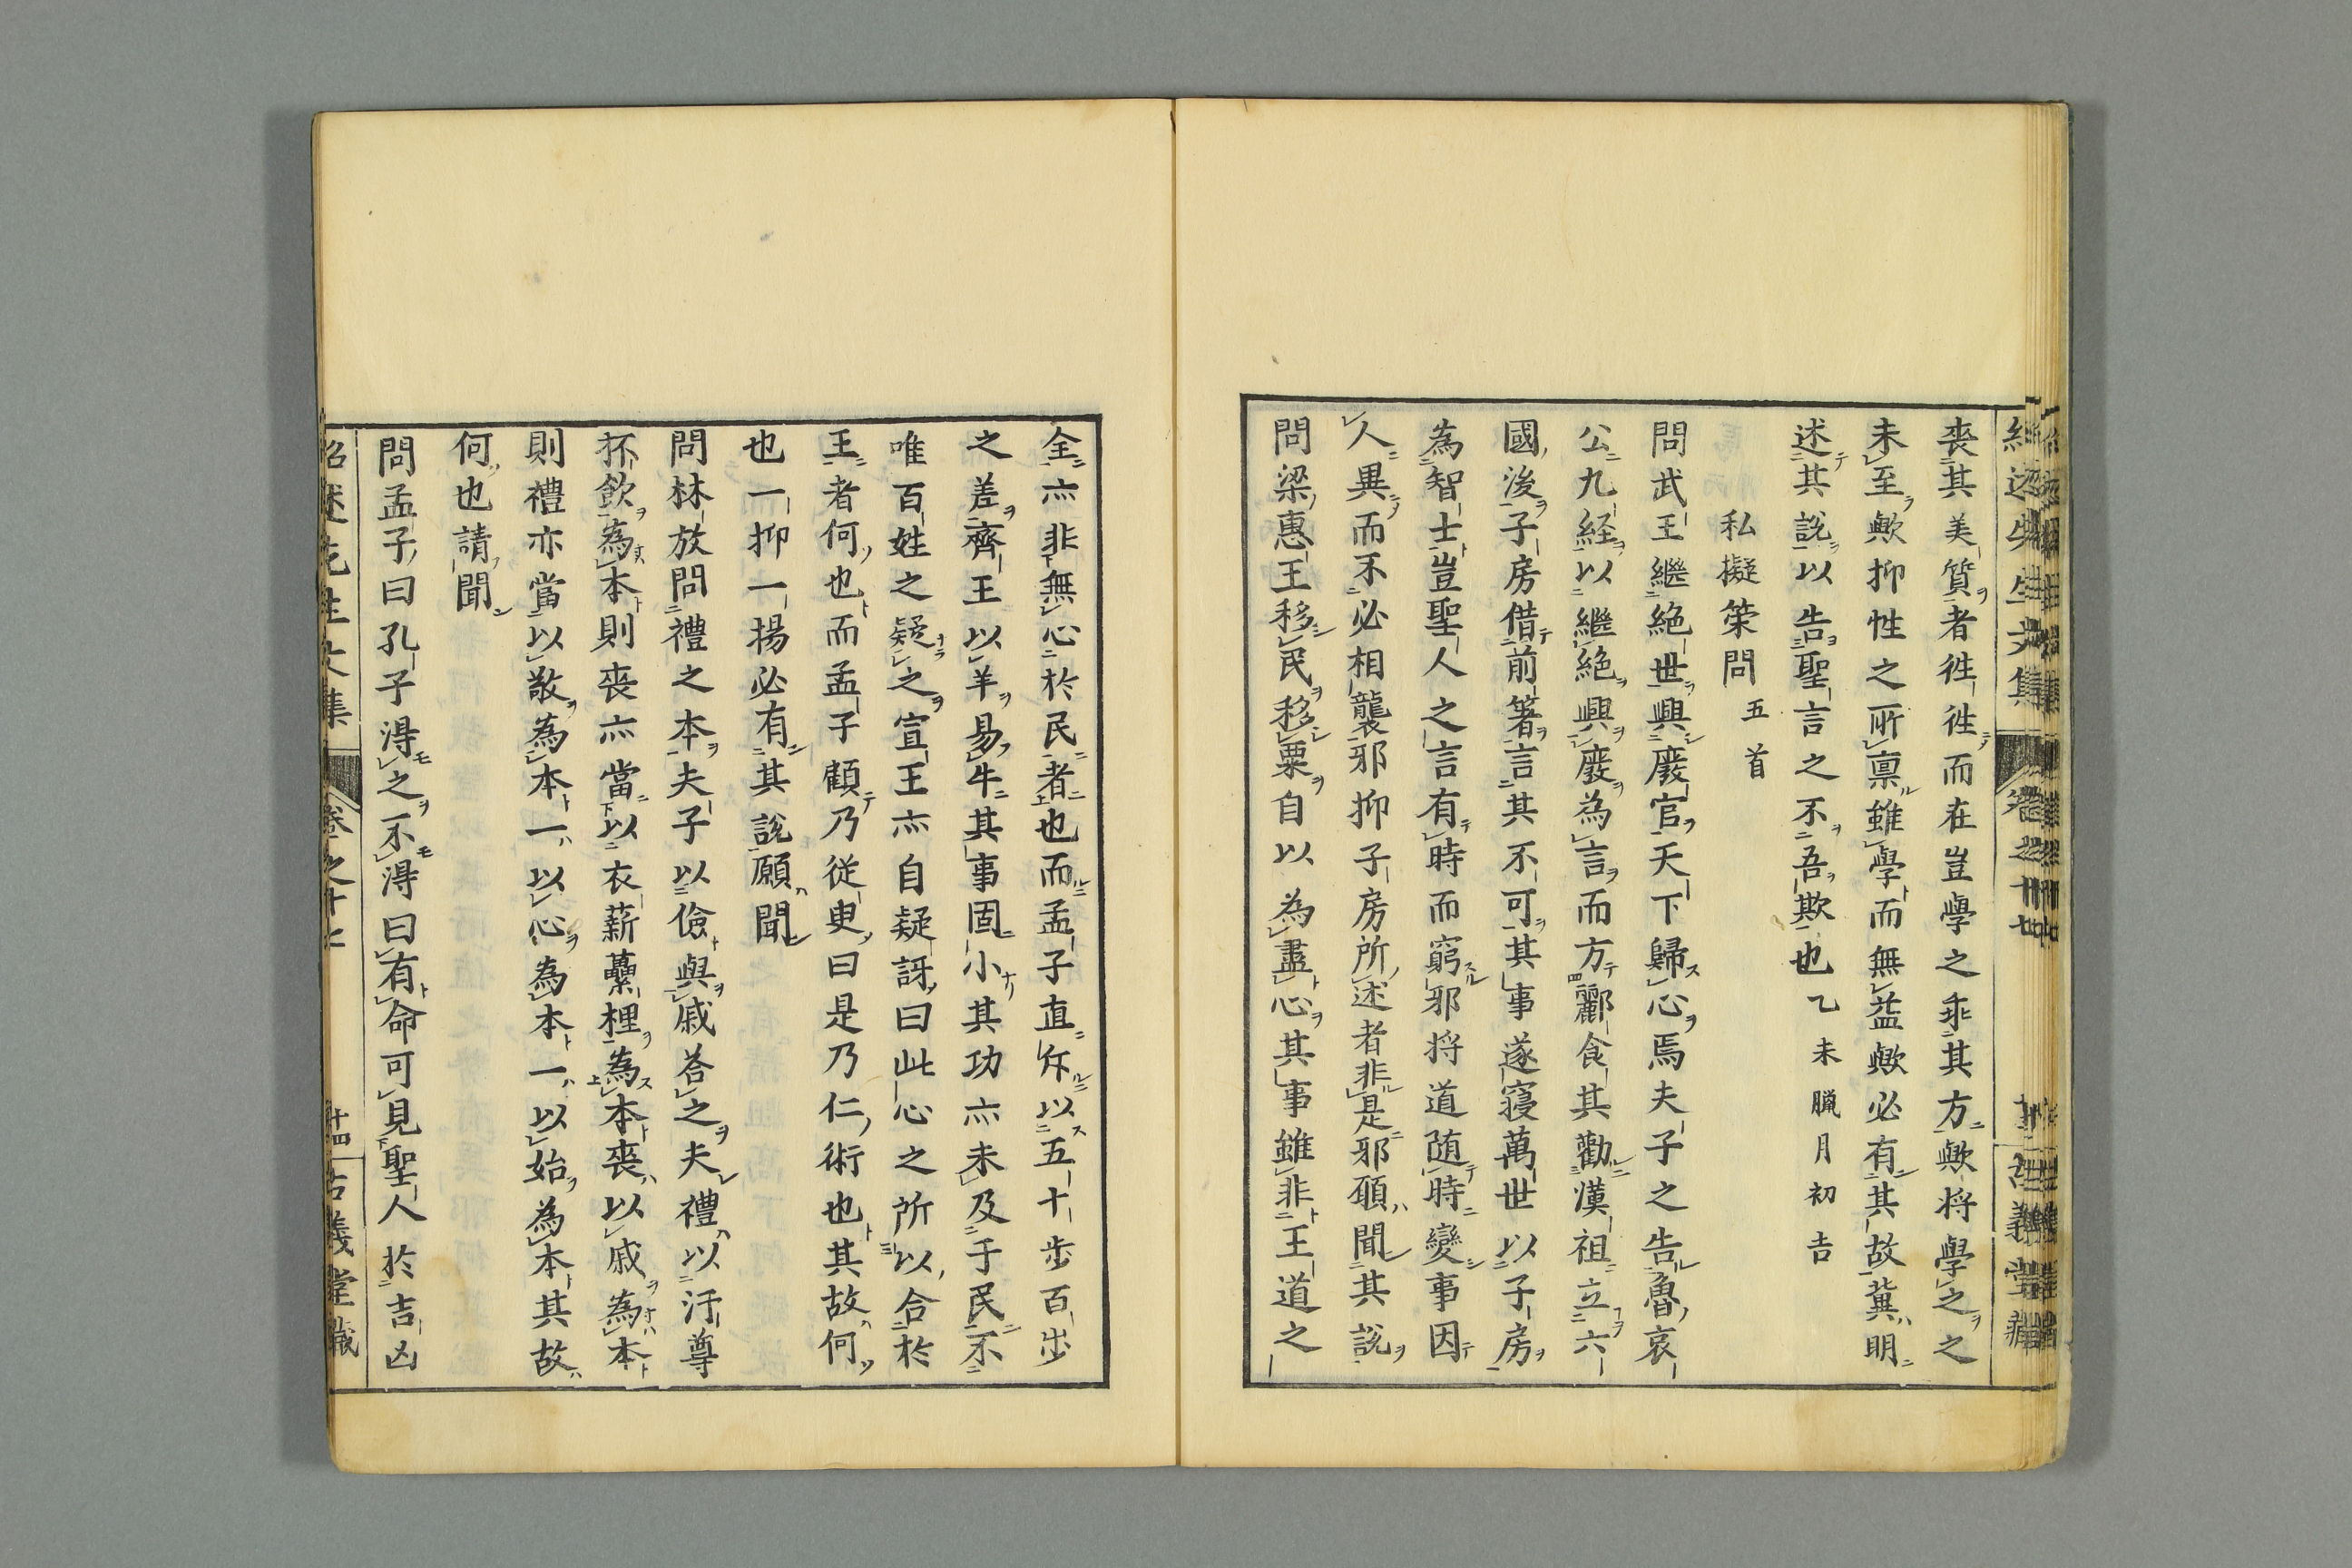 喪其美質者徃徃而在豈學之乖其方歟将學之之
未至歟抑性之所禀雖學而無益歟必有其故冀明
述其説以告聖言之不吾欺也乙未臘月初吉
私擬策問五首
問武王継絶世興廢官天下歸心焉夫子之告魯哀
公九経以繼絶興廢為言而方酈食其勸漢祖立六
國後子房借前箸言其不可其事遂寝萬世以子房
為智士豈聖人之言有時而窮邪将道随時變事因
人異而不必相襲邪抑子房所述者非是邪願聞其説
問梁惠王移民移粟自以為盡心其事雖非王道之
全亦非無心於民者也而孟子直斥以五十步百步
之差齊王以羊易牛其事固小其功亦未及于民不
唯百姓之疑之宣王亦自疑訝曰此心之所以合於
王者何也而孟子顧乃従臾曰是乃仁術也其故何
也一抑一揚必有其説願聞
問林放問禮之本夫子以儉與戚荅之夫禮以汙尊
抔飲為本則喪亦當以衣薪虆梩為本喪以戚為本
則禮亦當以敬為本一以心為本一以始為本其故
何也請聞
問孟子曰孔子得之不得曰有命可見聖人於吉凶
紹述先生文集 卷之十七 十四 古義堂藏